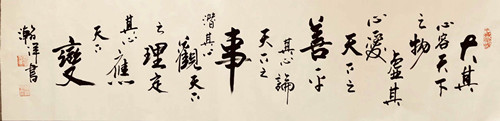 大其
心容天下
之物
虛其
心受
天下之
善平
其心論
天下之
事
潛其心
觀天下
之理定
其心應
天下之
變
瀚洋書